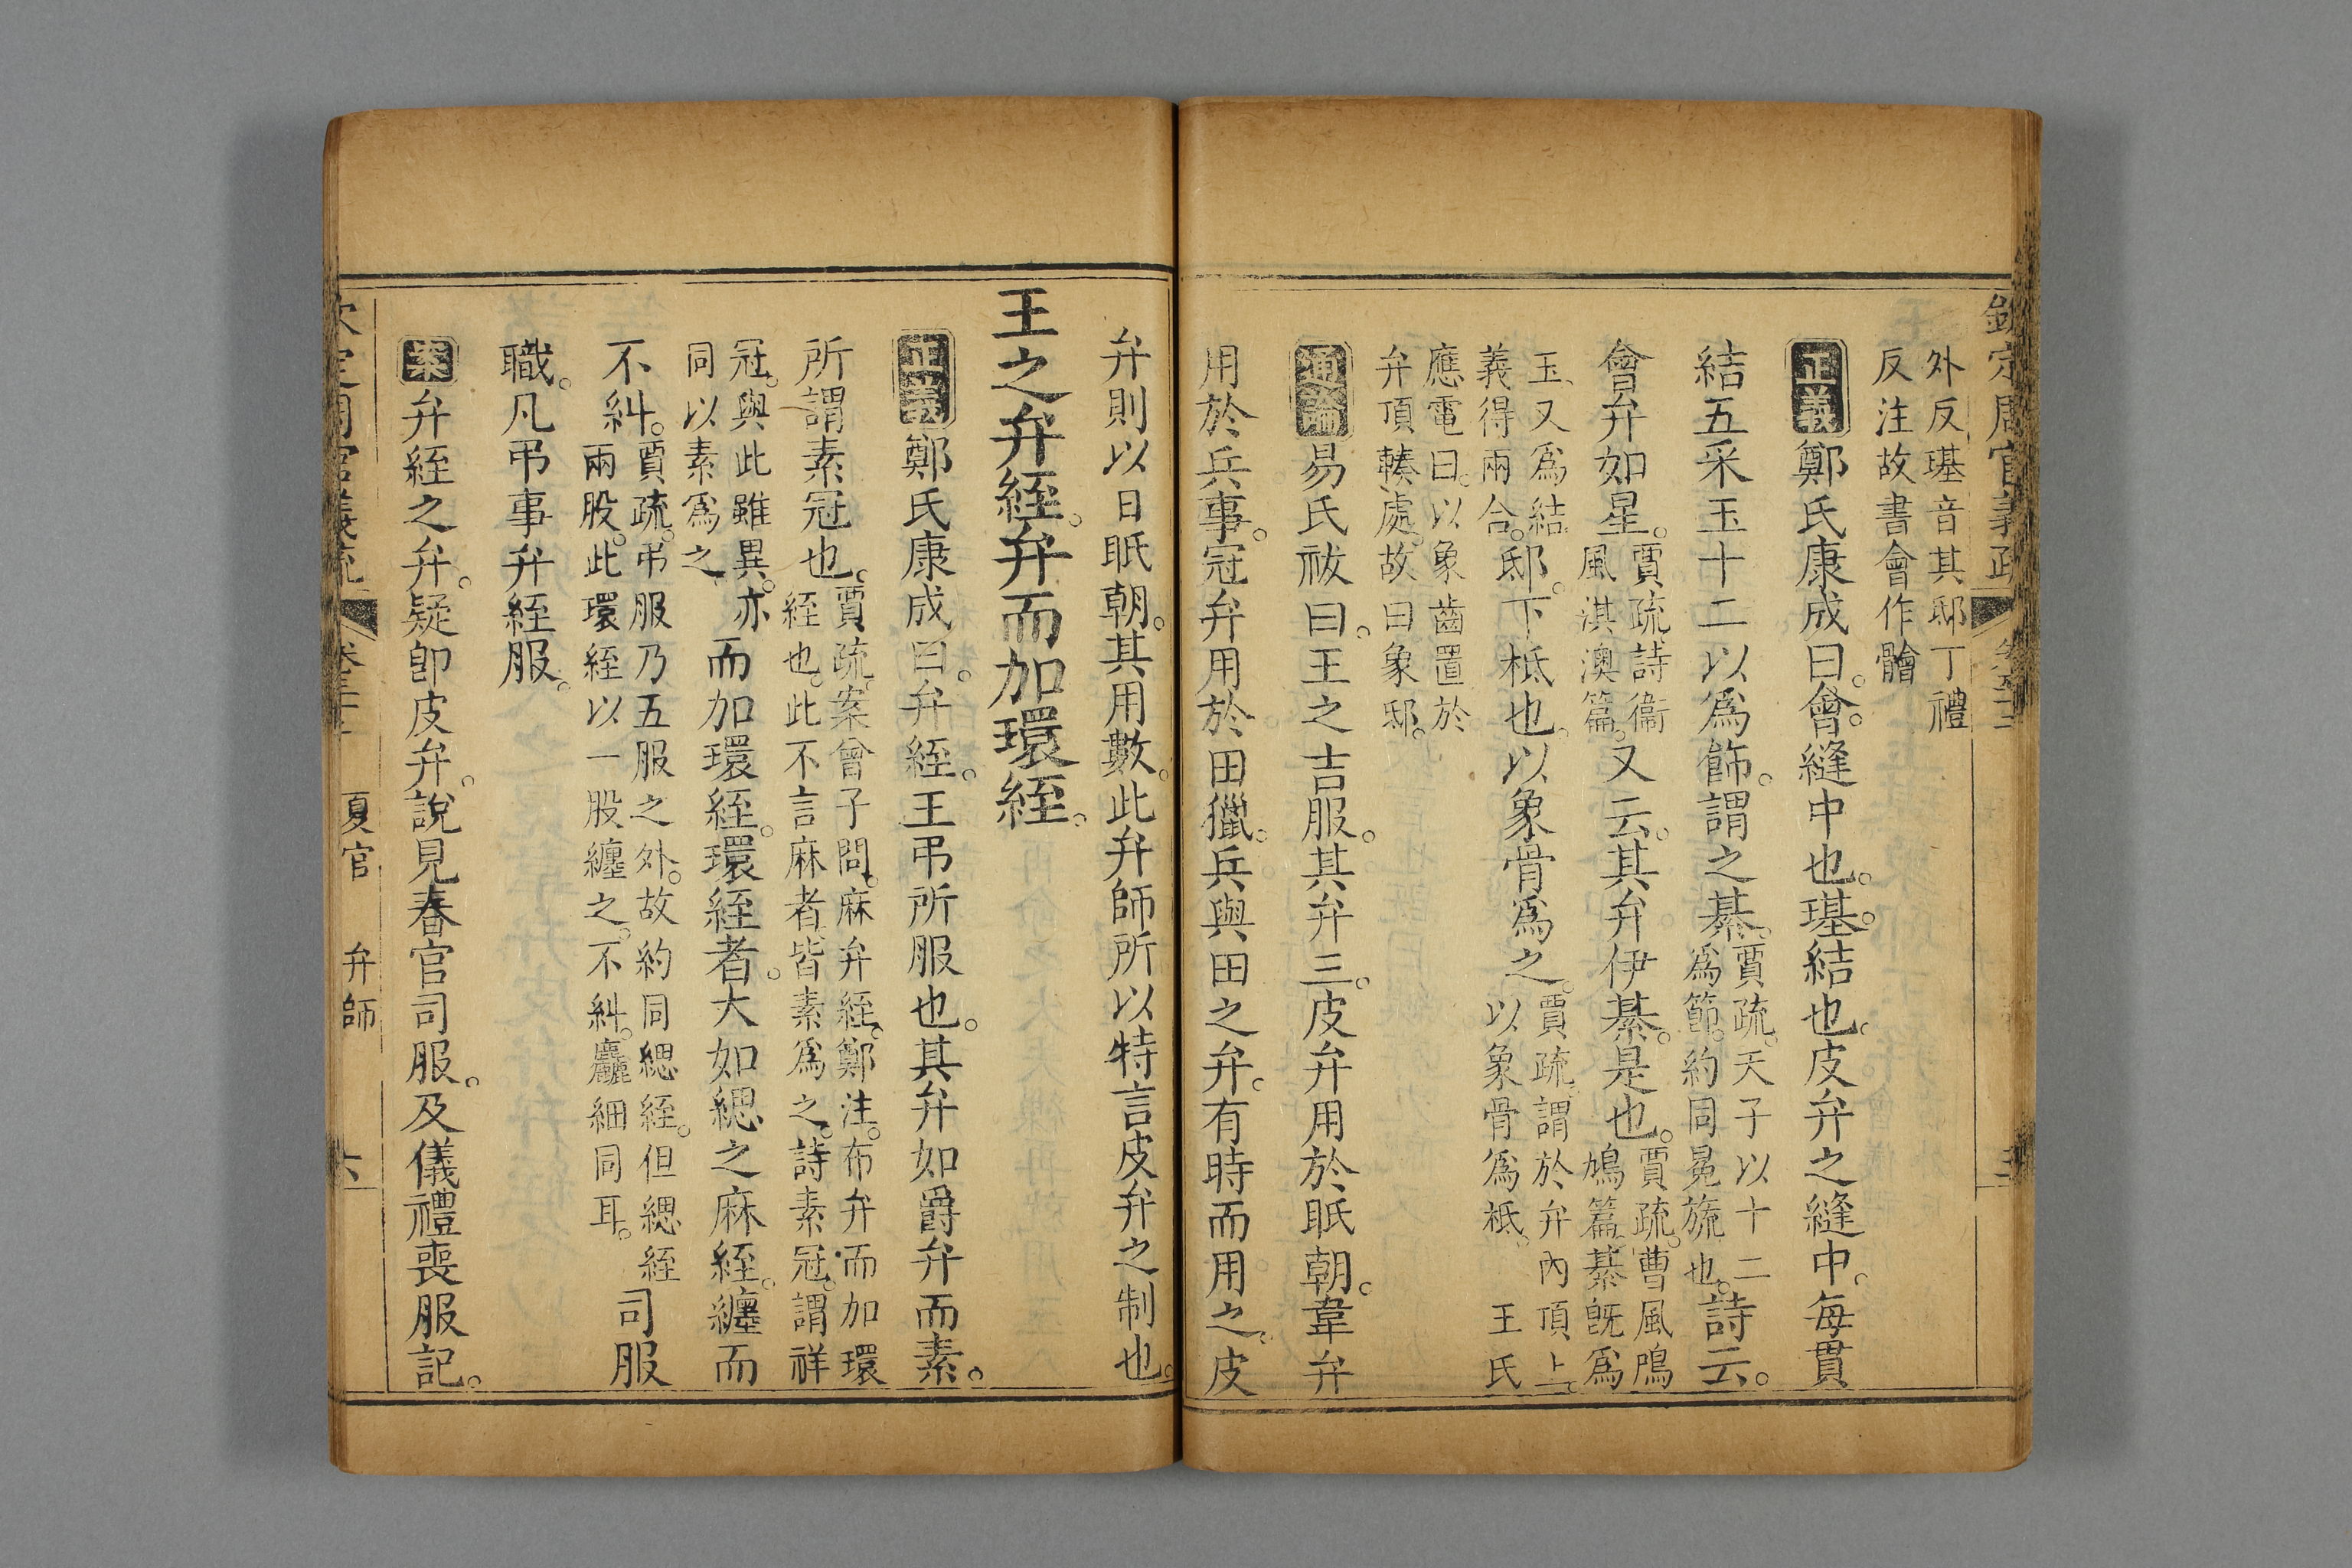 欽定周官義疏
外反璂音其邸丁禮
反注故書會作䯤
正義鄭氏康成曰會縫中也璂結也皮弁之縫中每貫
結五采玉十二以爲飾謂之綦賈疏天子以十二
爲節約同冕旒也詩云
會弁如星賈疏詩衞
風淇澳篇又云其弁伊綦是也賈疏曹風鳲
鳩篇綦旣爲
玉又爲結
義得兩合邸下柢也以象骨爲之賈疏謂於弁內頂上
以象骨爲柢 王氏
應電曰以象齒置於
弁頂輳處故曰象邸
通論易氏祓曰王之吉服其弁三皮弁用於眂朝韋弁
用於兵事冠弁用於田獵兵與田之弁有時而用之皮
弁則以日眂朝其用數此弁師所以特言皮弁之制也
王之弁絰弁而加環絰
正義鄭氏康成曰弁絰王弔所服也其弁如爵弁而素
所謂素冠也賈疏案曾子問麻弁絰鄭注布弁而加環
絰也此不言麻者皆素爲之詩素冠謂祥
冠與此雖異亦
同以素爲之而加環絰環絰者大如緦之麻絰纏而
不糾賈疏弔服乃五服之外故約同緦絰但緦絰
兩股此環絰以一股纏之不糾麤細同耳司服
職凡弔事弁絰服
案弁絰之弁疑卽皮弁說見春官司服及儀禮喪服記
欽定周官義疏 夏官 弁師 六